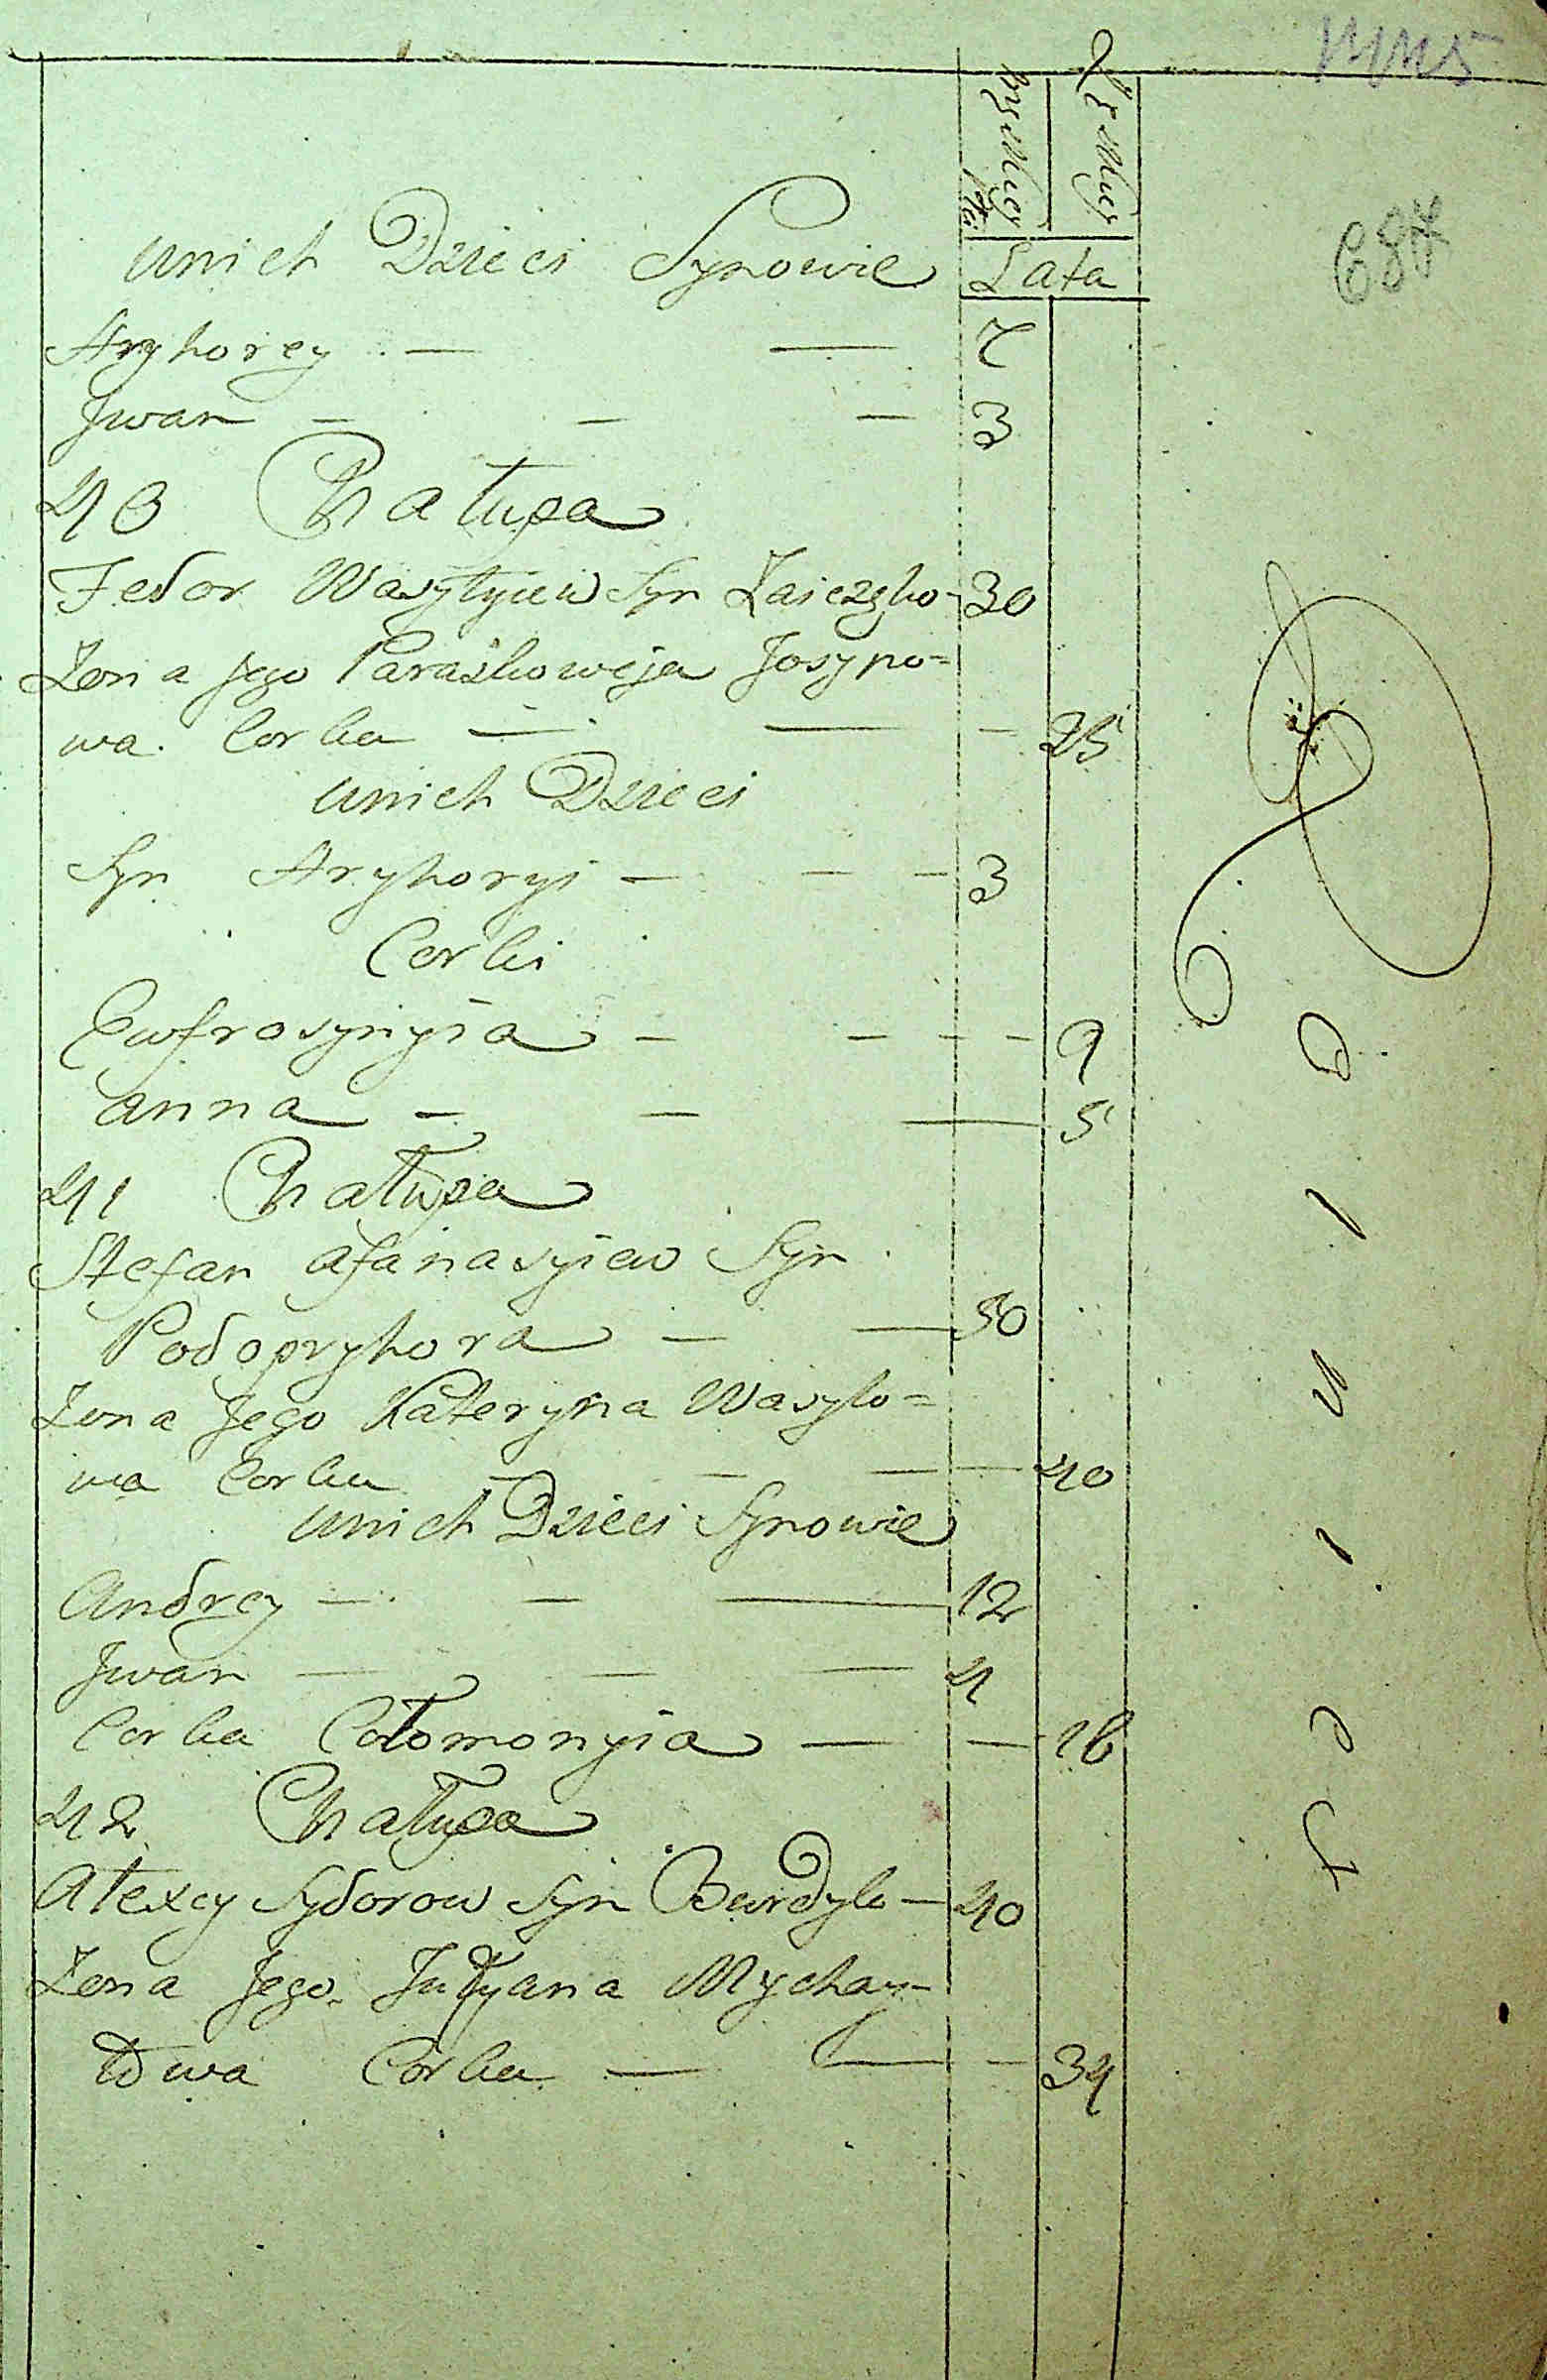 unich Dzieci Synowie
Lata
Hryhorey — — 7
Jwan — — — 3
40 Chałupa
Fedor Wasylyiew Syn Zaiczyho - 30
Zona Jego Paraskoweja Josypo=
wa Corka — — — 25
unich Dzieci
Syn Hryhoryi — — — 3
Corki
Ewfrosynyia — — — — 9
anna — — — 5
41 Chałupa
Stefan afanasyiew Syn
Podopryhora — — 50
Zona Jego Kateryna Wasylo=
wa Corka — — — — 40
unich Dzieci Synowie
Andrey — — — 12
Jwan — — — 4
Corka Sołomonyia — — 16
42 Chałupa
Alexey Sydorow Syn Burdyło — 40
Zona Jego Julyana Mychay-
łowa Corka — — — 34
687